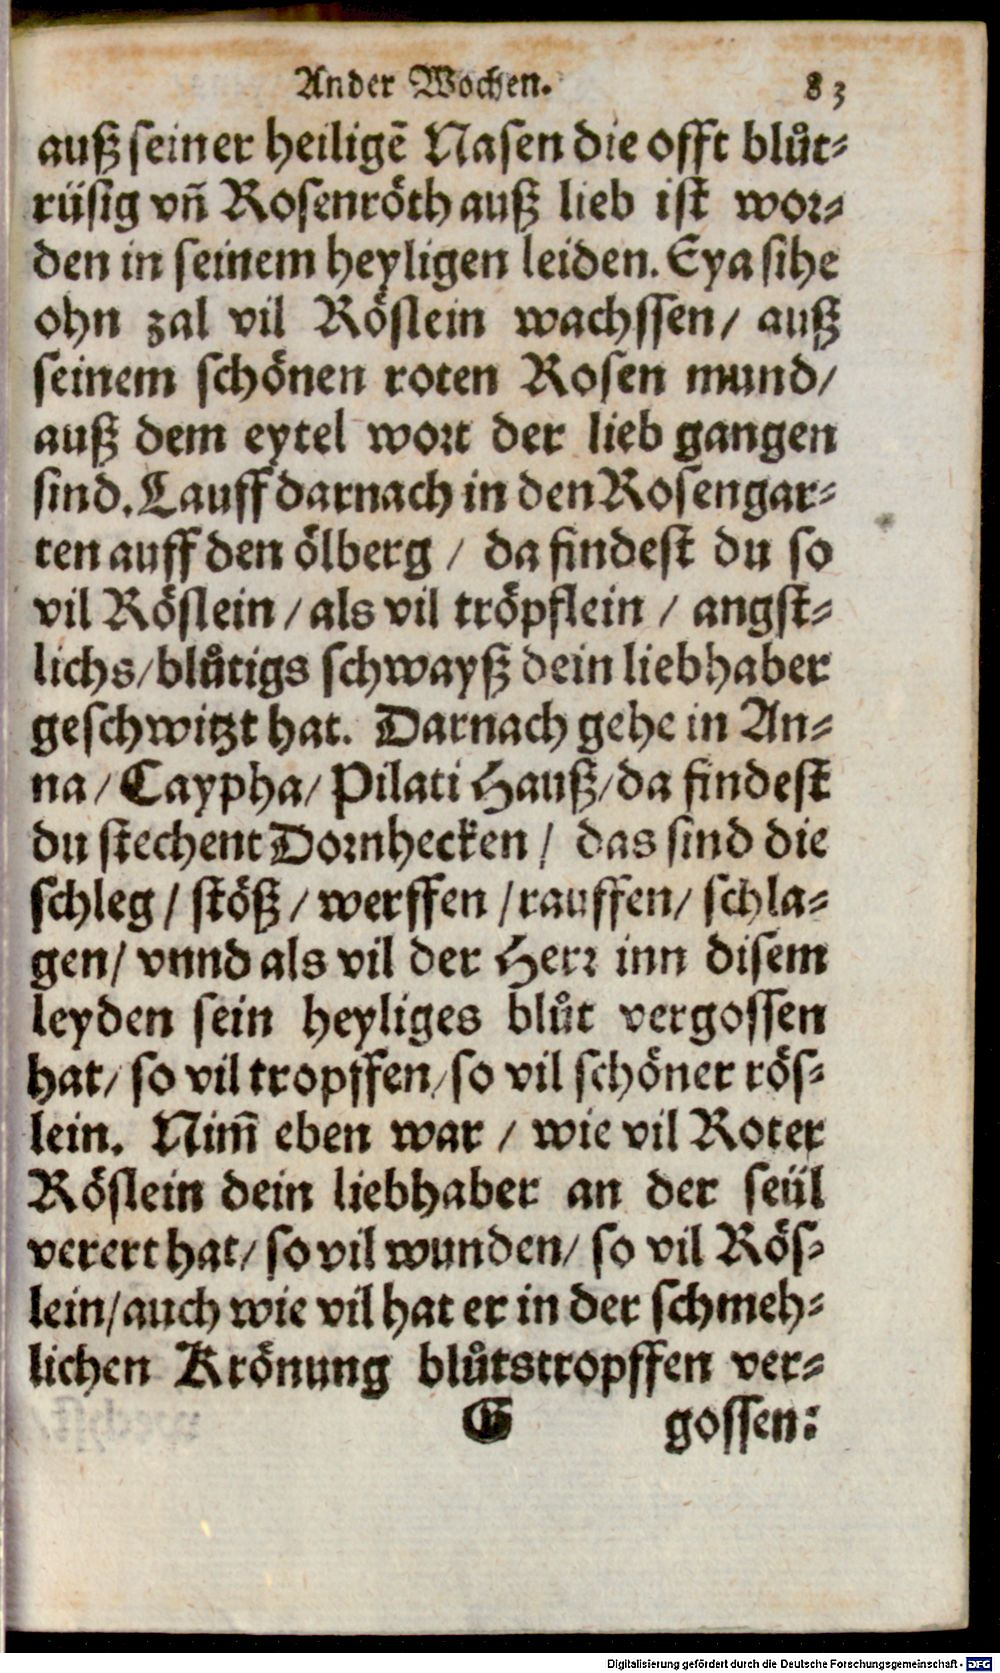 Ander Wochen. 83
auß seiner heiligē Nasen die offt blůt-
rüsig vñ Rosenröth auß lieb ist wor-
den in seinem heyligen leiden. Eya sihe
ohn zal vil Röslein wachssen/ auß
seinem schönen roten Rosen mund/
auß dem eytel wort der lieb gangen
sind. Lauff darnach in den Rosengar-
ten auff den ölberg / da findest du so
vil Röslein / als vil tröpflein / angst-
lichs/ blůtigs schwayß dein liebhaber
geschwitzt hat. Darnach gehe in An-
na/ Caypha/ Pilati Hauß/ da findest
du stechent Dornhecken / das sind die
schleg / stöß / werffen / rauffen/ schla-
gen/ vnnd als vil der Herr inn disem
leyden sein heyliges blůt vergossen
hat/ so vil tropffen/ so vil schöner rös-
lein. Nim̄ eben war / wie vil Roter
Röslein dein liebhaber an der seül
verert hat/ so vil wunden/ so vil Rös-
lein/ auch wie vil hat er in der schmeh-
lichen Krönung blůtstropffen ver-
G gossen:
Digitalisierung gefördert durch die Deutsche Forschungsgemeinschaft - DFG